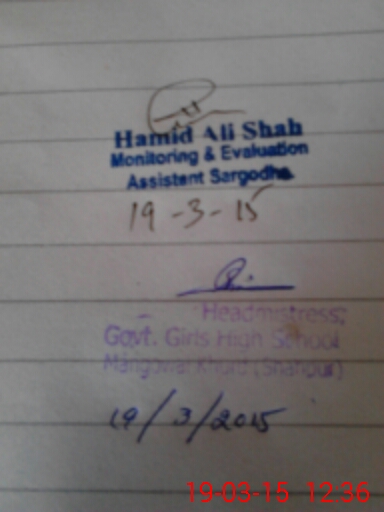 Hamid Ali Shah
Monitoring & Evaluation
Assistant Sargodha
19-3-15
Headmistress;
Govt. Girls High School
Mangowal Khurd (Shahpur)
19/3/2015
19-03-15 12:36